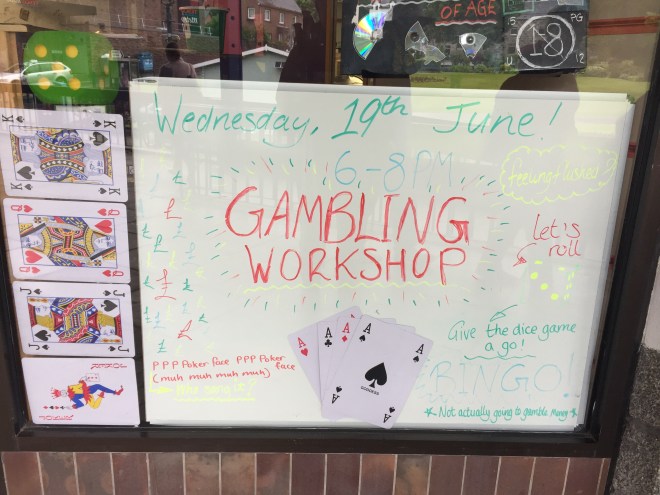 OF AGE
15
PG
18
12
Wednesday, 19th June!
6-8PM
feeling flushed?
GAMBLING
WORKSHOP
let's
roll
Give the dice game
a go!
BINGO!
PPP Poker face PPP Poker
face
(muh muh muh muh)
*Not actually going to gamble money*
K
K
Q
Q
J
J
A
A
A
A
A
A
A